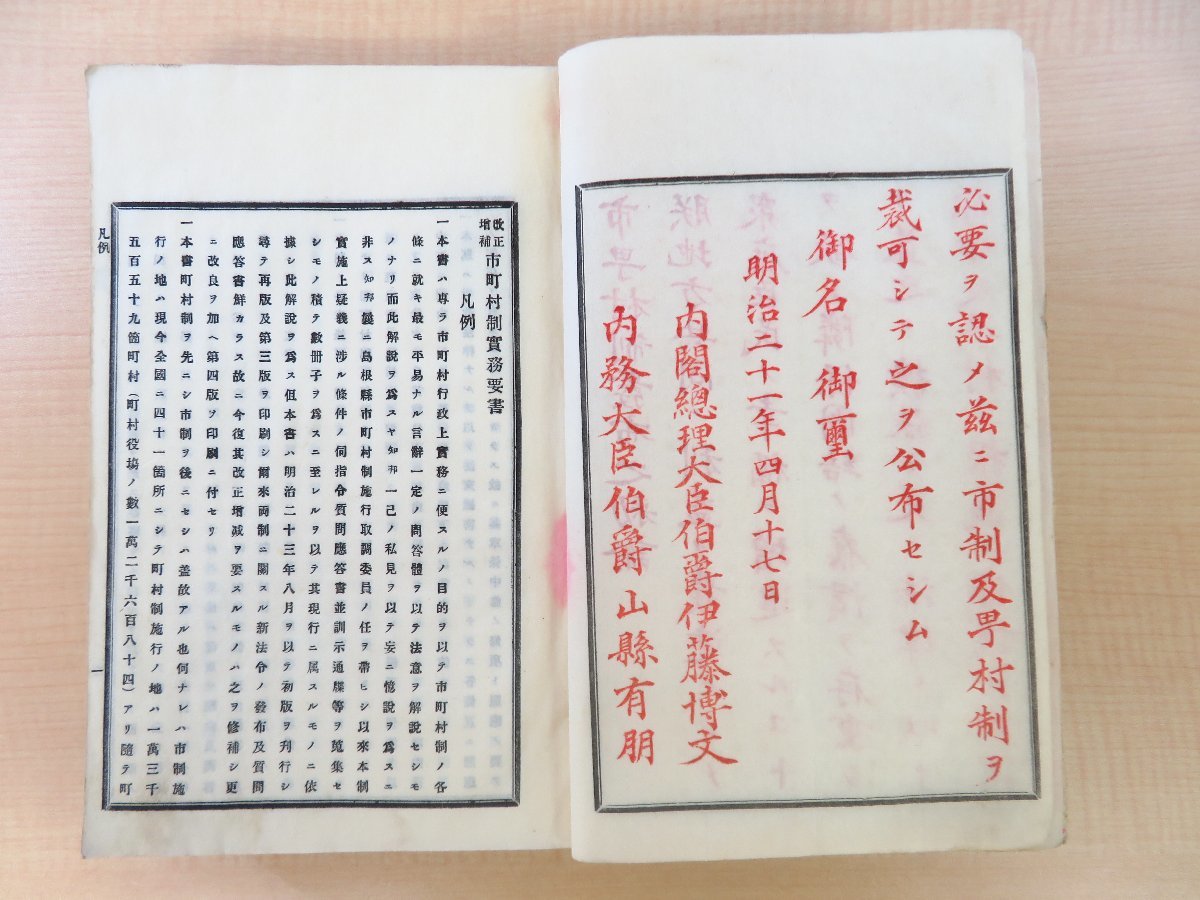 必要ヲ認メ茲ニ市制及町村制ヲ
裁可シテ之ヲ公布セシム
御名 御璽
明治二十一年四月十七日
内閣總理大臣伯爵伊藤博文
内務大臣伯爵山縣有朋
改正増補市町村制實務要書
凡例
一本書ハ專ラ市町村行政上實務ニ便スルノ目的ヲ以テ市町村制ノ各
條ニ就キ最モ平易ナル言辭一定ノ問答體ヲ以テ法意ヲ解説セシモ
ノナリ而此解説ヲ爲スヤ知邦一己ノ私見ヲ以テ妄ニ憶説ヲ爲スニ
非ス知邦曩ニ島根縣市町村制施行取調委員ノ任ヲ帶ヒシ以來本制
實施上疑義ニ渉ル條件ノ伺指令質問應答書並訓示通牒等ヲ蒐集セ
シモノ積テ數册子ヲ爲スニ至レルヲ以テ其現行ニ属スルモノニ依
據シ此解説ヲ爲ス但本書ハ明治二十三年八月ヲ以テ初版ヲ刋行シ
尋テ再版及第三版ヲ印刷シ爾來兩制ニ關スル新法令ノ發布及質問
應答書鮮カラス故ニ今復其改正增减ヲ要スルモノハ之ヲ修補シ更
ニ改良ヲ加ヘ第四版ヲ印刷ニ付セリ
一本書町村制ヲ先ニシ市制ヲ後ニセシハ盖故アル也何ナレハ市制施
行ノ地ハ現今全國ニ四十一箇所ニシテ町村制施行ノ地ハ一萬三千
五百五十九箇町村(町村役塲ノ數一萬二千六百八十四)アリ隨テ町
凡例
一